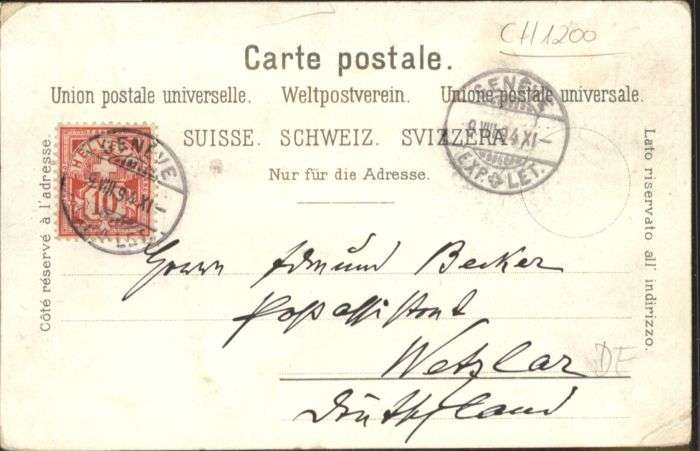 CH1200
Carte postale.
Union postale universelle. Weltpostverein. Unione postale universale.
SUISSE. SCHWEIZ. SVIZZERA.
Nur für die Adresse.
Côté réservé à l'adresse.
Lato riservato all' indirizzo.
HELVETIA
10
GENÈVE
9.VIII.94.XI–
EXP. LET.
GENÈVE
9.VIII.94.XI–
EXP. LET.
Herrn Edmund Becker
Postassistent
Wetzlar
DE
Deutschland